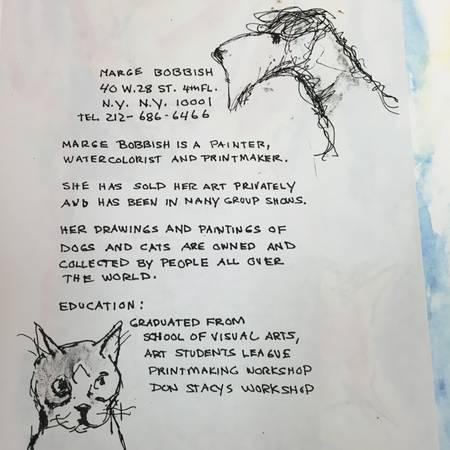 MARGE BOBBISH
40 W. 28 ST. 4TH FL.
N.Y. N.Y. 10001
TEL. 212-686-6466
MARGE BOBBISH IS A PAINTER,
WATERCOLORIST AND PRINTMAKER.
SHE HAS SOLD HER ART PRIVATELY
AND HAS BEEN IN MANY GROUP SHOWS.
HER DRAWINGS AND PAINTINGS OF
DOGS AND CATS ARE OWNED AND
COLLECTED BY PEOPLE ALL OVER
THE WORLD.
EDUCATION:
GRADUATED FROM
SCHOOL OF VISUAL ARTS,
ART STUDENTS LEAGUE
PRINTMAKING WORKSHOP
DON STACYS WORKSHOP